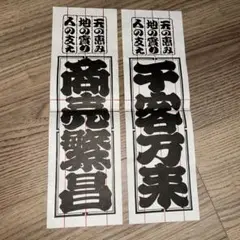 天の恵み
地の實り
人の支え
千客万来
天の恵み
地の實り
人の支え
商売繁昌